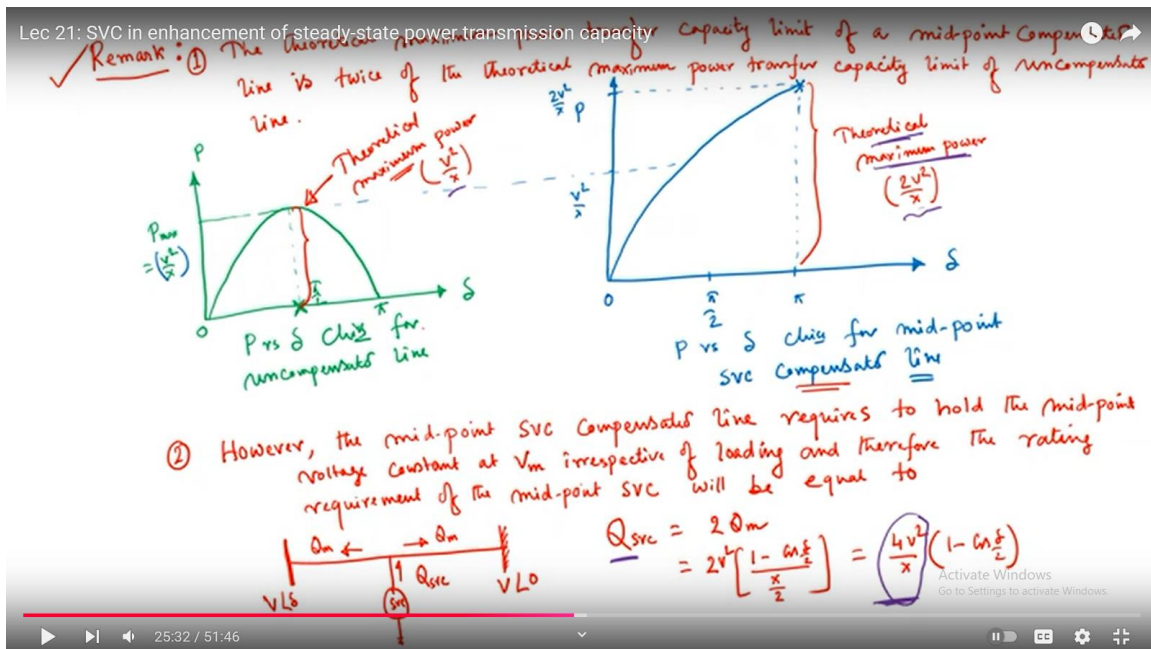 Lec 21: SVC in enhancement of steady-state power transmission capacity
Remark: ① The theoretical maximum transfer capacity limit of a mid-point compensated
line is twice of the theoretical maximum power transfer capacity limit of uncompensated
line.
P
Theoretical
maximum power
(V²/x)
Pmax
=(V²/x)
0
π/2
π
δ
P vs δ chis for
uncompensated line
2V²/x
P
V²/x
Theoretical
maximum power
(2V²/x)
0
π/2
π
δ
P vs δ chis for mid-point
SVC compensated line
② However, the mid-point SVC compensated line requires to hold the mid-point
voltage constant at Vm irrespective of loading and therefore the rating
requirement of the mid-point SVC will be equal to
Qm ← → Qm
↑ Qsvc
SVC
V∠δ
V∠0
Qsvc = 2Qm
= 2V² [(1 - cos δ/2)/(x/2)] = 4V²/x (1 - cos δ/2)
Activate Windows
Go to Settings to activate Windows.
25:32 / 51:46
CC